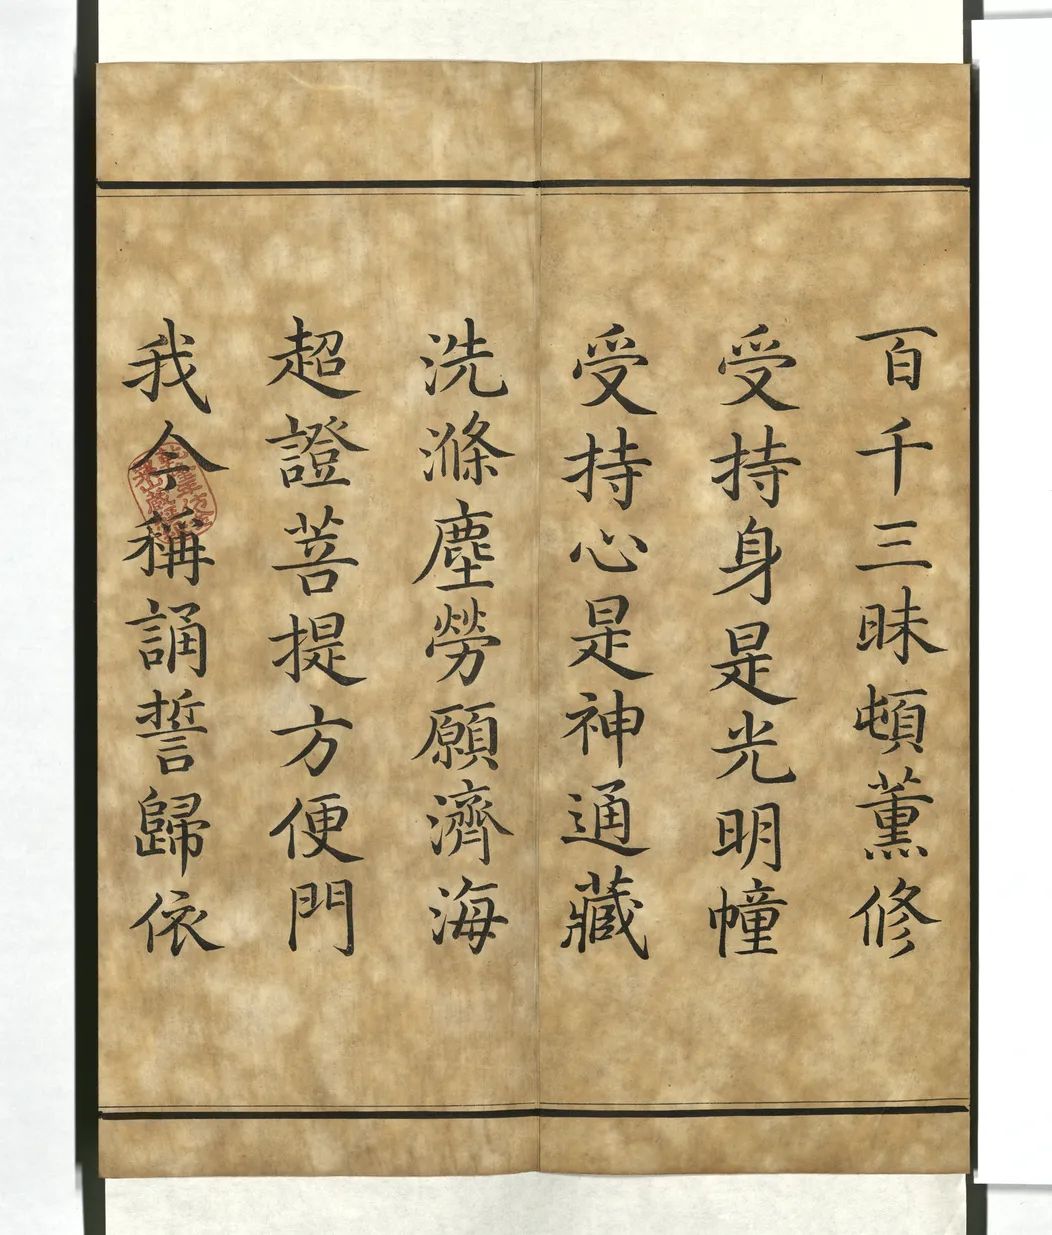 百千三昧頓薰修
受持身是光明幢
受持心是神通藏
洗滌塵勞願濟海
超證菩提方便門
我今稱誦誓歸依